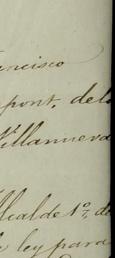 ancisco
pont, de la
Villanueva
Alcalde 1º, de
ley para